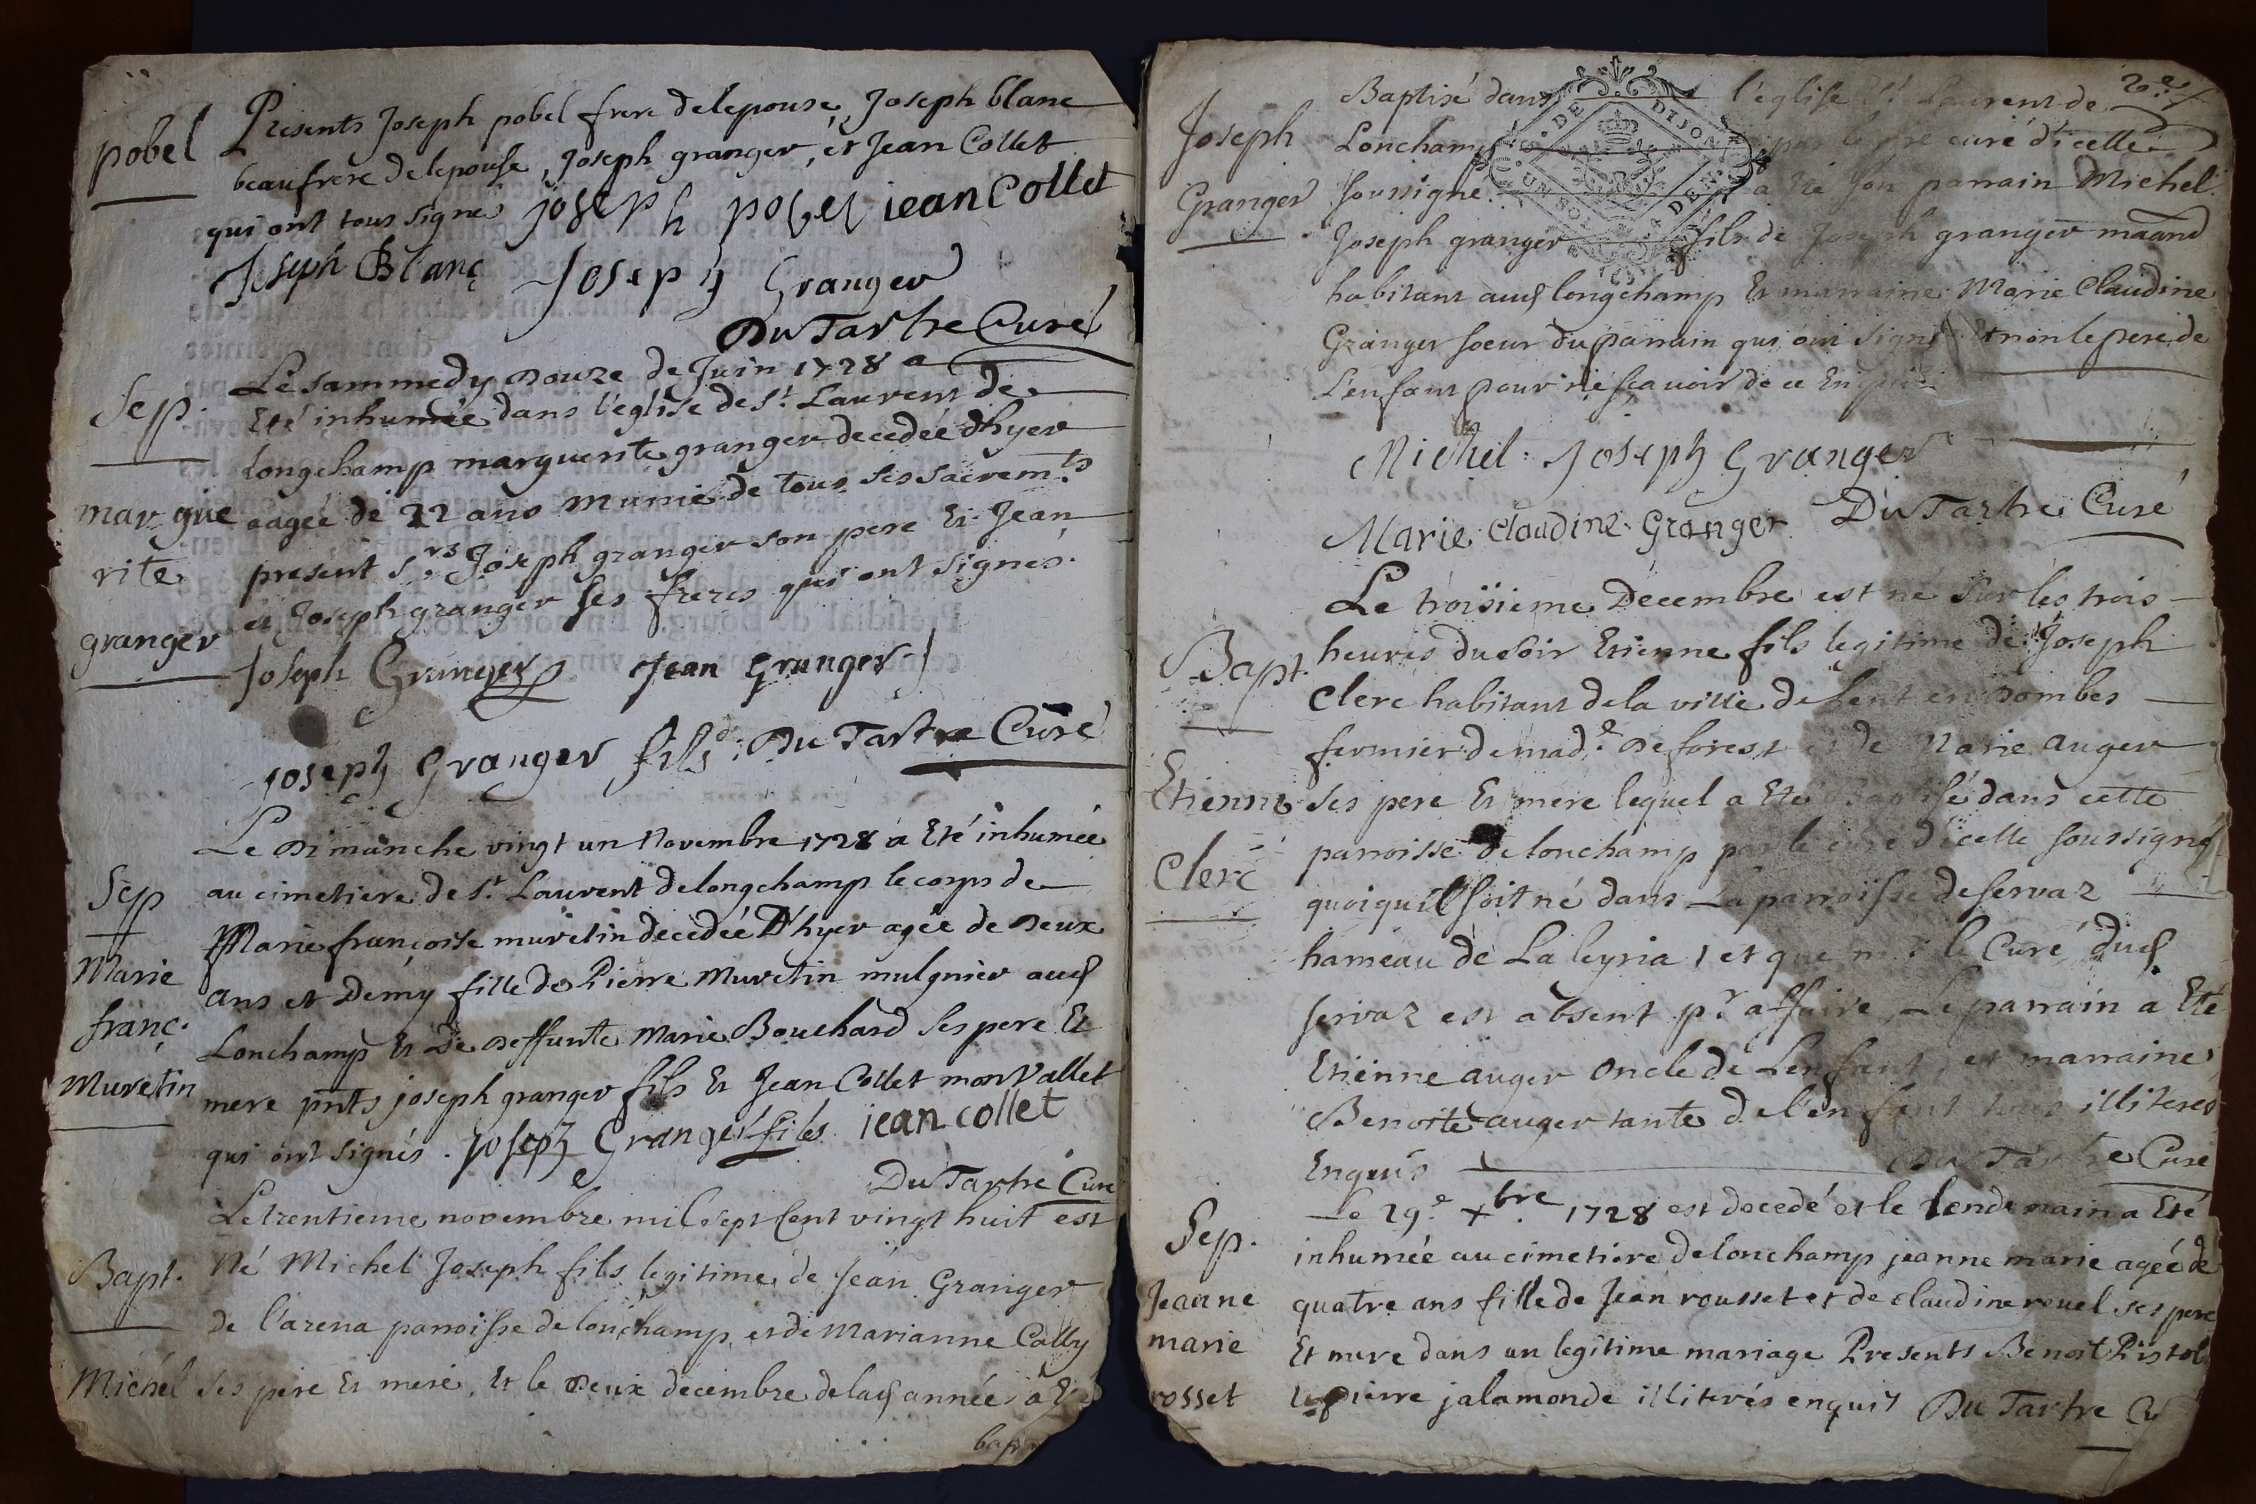 pobel
Presents Joseph pobel frere delepouse, Joseph blanc
beaufrere delepouse, Joseph granger, et Jean Collet
qui ont tous signe joseph pobel jean Collet
Joseph Blanc Joseph Granger
Du Tartre Curé
Sep.
marguerite
granger
Le sammedy douze de Juin 1728 a
Eté inhumée dans l'eglise de St. Laurent de
Longchamp marguerite granger decedée d'hyer
aagée de 22 ans munie de tous ses sacremts
present Srs Joseph granger son pere Et Jean
et Joseph granger ses freres qui ont signés.
Joseph Granger Jean Granger
joseph Granger fils Du Tartre Curé
Sep
Marie
franç.
Muretin
Le Dimanche vingt un Novembre 1728 a Eté inhumée
au cimetiere de St. Laurent delongchamp le corps de
Marie françoise muretin decedée D'hyer agée de Deux
ans et Demy fille de Pierre Muretin mulgnier aud
Lonchamp Et De Deffunte Marie Bouchard ses pere Et
mere pnts joseph granger fils Et Jean Collet mon Vallet
qui ont signés. joseph Granger fils jean collet
Du Tartre Curé
Bapt.
Michel
Le trentieme novembre mil sept Cent vingt huit est
Né Michel Joseph fils legitime de Jean Granger
de l'arena parroisse de lonchamp et de Marianne Cally
ses pere Et mere, Et le Deux decembre delad année a Eté
Joseph
Granger
20.e
Baptisé dans l'eglise St Laurent de
Lonchamp par le curé d'icelle
soussigné a été son parrain Michel
Joseph granger fils de Joseph granger maand
habitant aud longchamp Et marraine Marie Claudine
Granger soeur du parrain qui ont signé Et non le pere de
L'enfant pour ne sçavoir de ce Enquis
G. DE DIJON
UN SOL 4 DEN.
Michel Joseph Granger
Marie Claudine Granger Du Tartre Curé
Bapt.
Etienne
Clerc
Le troisieme Decembre est né sur les trois
heures du soir Etienne fils legitime de Joseph
Clerc habitant de la ville de Lent en Dombes
fermier de made De forest et de Marie auger
ses pere Et mere lequel a Eté Baptisé dans cette
parroisse de lonchamp par le curé d'icelle soussigné
quoiqu'il soit né dans La parroisse de servaz
hameau de La leyria, et que mr le Curé dud
servaz est absent pr affaire, Le parrain a Eté
Etienne auger Oncle de Lenfant, et marraine
Benoite auger tante de l'enfant tous illiteres
Enquis Du Tartre Curé
Sep.
Jeanne
marie
rosset
Le 29.e xbre. 1728 est decedé et le lendemain a Eté
inhumée au cimetiere delonchamp jeanne marie agée de
quatre ans fille de Jean rousset et de claudine revel ses pere
Et mere dans un legitime mariage Presents Benoit Pistol
Et pierre jalamonde illiterés enquis Du Tartre